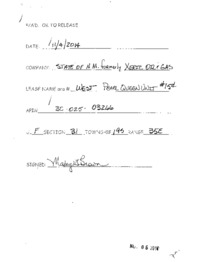 O.K. TO RELEASE
DATE 10/9/2014
COMPANY STATE OF N.M. formerly Xeric OIL & GAS
LEASE NAME and # WEST Pearl QUEEN UNIT #154
API# 30-025-03266
F SECTION 31 TOWNSHIP 19S RANGE 35E
SIGNED